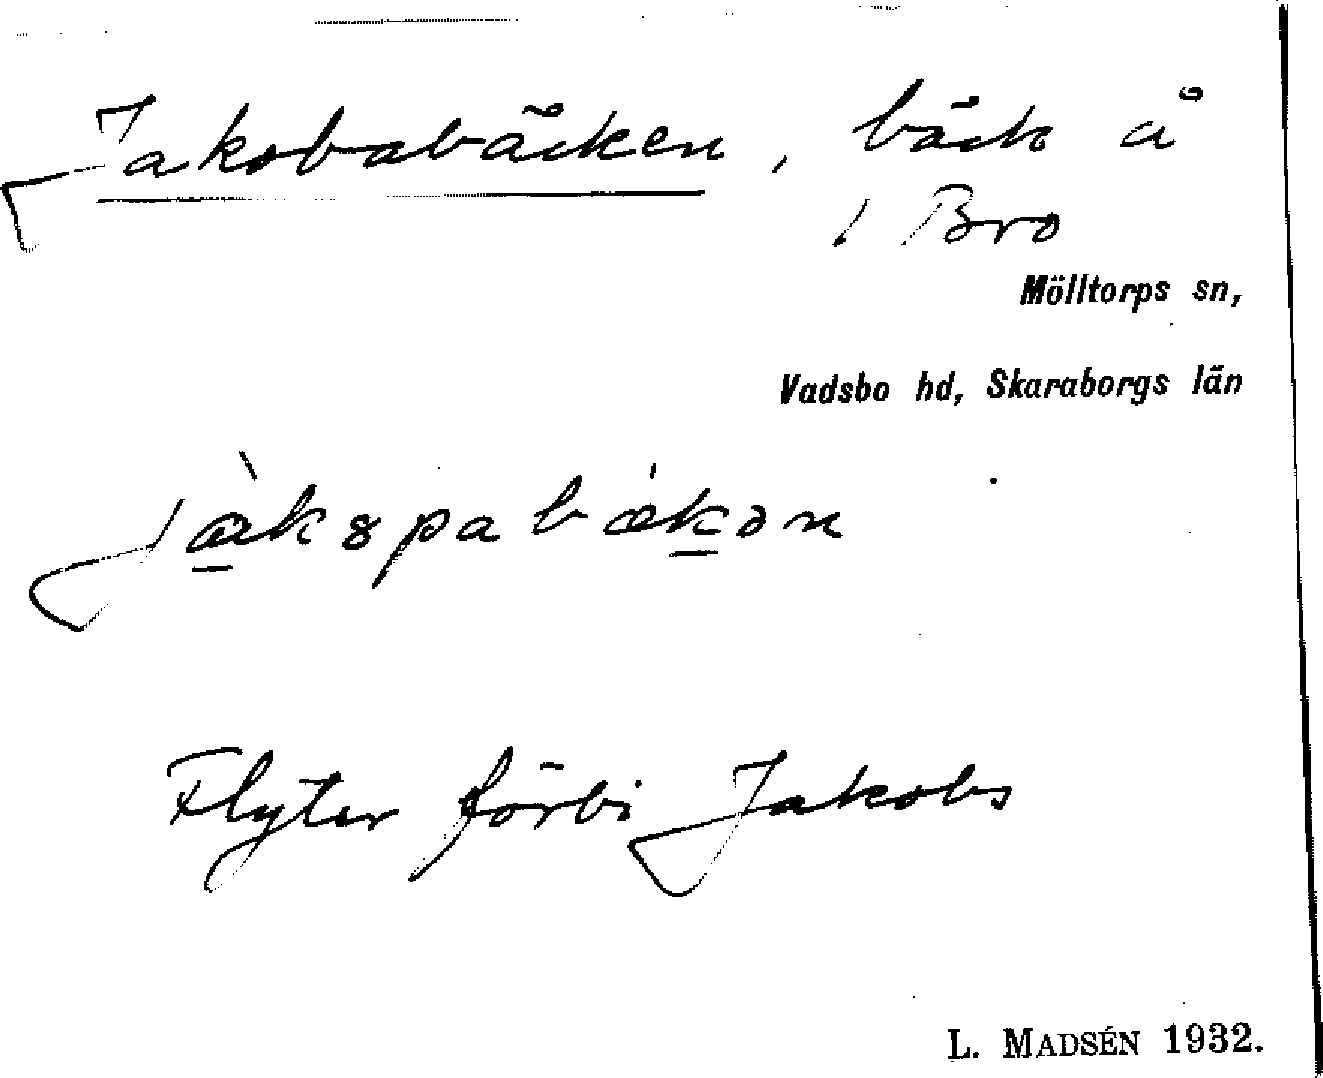 Jakobabäcken, bäck å
i Bro
Mölltorps sn,
Vadsbo hd, Skaraborgs län
jàkɞpabækən
Flyter förbi Jakobs
L. MADSÉN 1932.